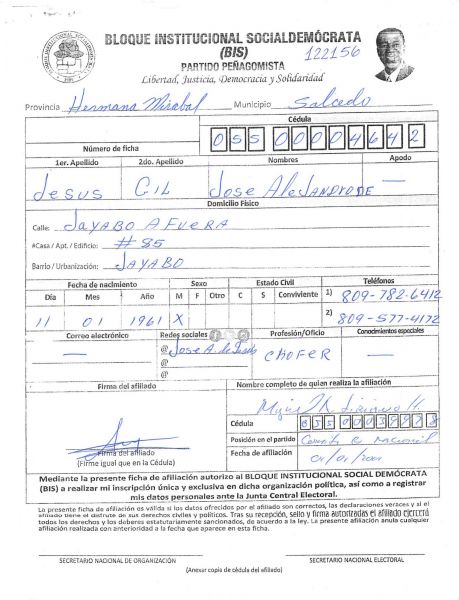 BLOQUE INSTITUCIONAL SOCIALDEMÓCRATA
(BIS)
122156
PARTIDO PEÑAGOMISTA
Libertad, Justicia, Democracia y Solidaridad
Provincia Hermana Mirabal Municipio Salcedo
Cédula
Número de ficha 055 0000464 2
1er. Apellido 2do. Apellido Nombres Apodo
de Jesus GIL Jose Alejandro DE —
Domicilio Físico
Calle: JAYABO AFUERA
#Casa / Apt. / Edificio: # 85
Barrio / Urbanización: JAYABO
Fecha de nacimiento Sexo Estado Civil Teléfonos
Día Mes Año M F Otro C S Conviviente 1) 809-782-6412
11 01 1961 X 2) 809-577-4172
Correo electrónico Redes sociales Profesión/Oficio Conocimientos especiales
— @Jose A. de Jesús CHOFER —
@
@
Firma del afiliado Nombre completo de quien realiza la afiliación
Cédula
Posición en el partido
Firma del afiliado
(Firme igual que en la Cédula)
Fecha de afiliación
Mediante la presente ficha de afiliación autorizo al BLOQUE INSTITUCIONAL SOCIAL DEMÓCRATA
(BIS) a realizar mi inscripción única y exclusiva en dicha organización política, así como a registrar
mis datos personales ante la Junta Central Electoral.
La presente ficha de afiliación es válida si los datos ofrecidos por el afiliado son correctos, las declaraciones veraces y si el
afiliado tiene el disfrute de sus derechos civiles y políticos. Tras su recepción, sello y firma autorizadas el afiliado ejercerá
todos los derechos y los deberes estatutariamente sancionados, de acuerdo a la ley. La presente afiliación anula cualquier
afiliación realizada con anterioridad a la fecha que aparece en esta ficha.
SECRETARIO NACIONAL DE ORGANIZACIÓN SECRETARIO NACIONAL ELECTORAL
(Anexar copia de cédula del afiliado)